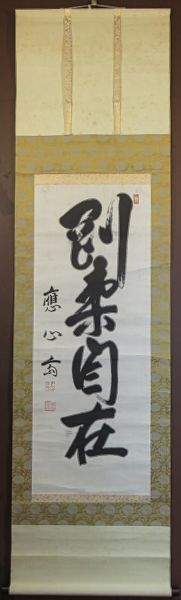 剛柔自在
應心齋